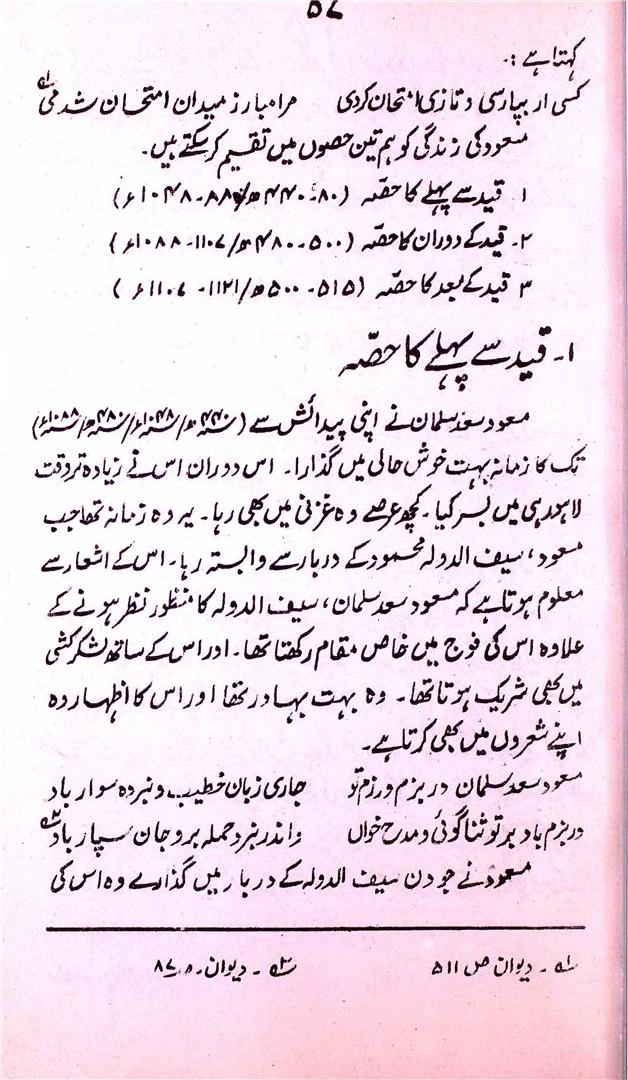 ۵۷
کہتا ہے :۔
کسی ار بپارسی و تازی امتحان کردی    مرا مبارز میدان امتحان شدمی لہ
مسعود کی زندگی کو ہم تین حصوں میں تقسیم کر سکتے ہیں۔
۱ قید سے پہلے کا حصّہ (۸۰-۴۴۰ھ/۸۸-۱۰۴۸ء)
۲۔ قید کے دوران کا حصّہ (۵۰۰-۴۸۰ھ/۱۱۰۷-۱۰۸۸ء)
۳ قید کے بعد کا حصّہ (۵۱۵-۵۰۰ھ/۱۱۲۱-۱۱۰۷ء)
۱۔ قید سے پہلے کا حصّہ
مسعود سعد سلمان نے اپنی پیدائش سے (۴۴۰ھ/۱۰۴۸ء/۴۸۰ھ/۱۰۸۸ء)
تک کا زمانہ بہت خوش حالی میں گذارا۔ اس دوران اس نے زیادہ تر وقت
لاہور ہی میں بسر کیا۔ کچھ عرصے وہ غزنی میں بھی رہا۔ یہ وہ زمانہ تھا جب
مسعود، سیف الدولہ محمود کے دربار سے وابستہ رہا۔ اس کے اشعار سے
معلوم ہوتا ہے کہ مسعود سعد سلمان، سیف الدولہ کا منظور نظر ہونے کے
علاوہ اس کی فوج میں خاص مقام رکھتا تھا۔ اور اس کے ساتھ لشکر کشی
میں بھی شریک ہوتا تھا۔ وہ بہت بہادر تھا اور اس کا اظہار وہ
اپنے شعروں میں بھی کرتا ہے۔
مسعود سعد سلمان در بزم و رزم تو    جاری زبان خطیب و نبردہ سوار باد
در بزم باد بر تو ثنا گوئی و مدح خواں    واندر نبرد حملہ بر و جان سپار باد ۲ہ
مسعود نے جو دن سیف الدولہ کے دربار میں گذارے وہ اس کی
۱ہ ۔ دیوان ص ۵۱۱    ۲ہ ۔ دیوان۔ ص ۸۷